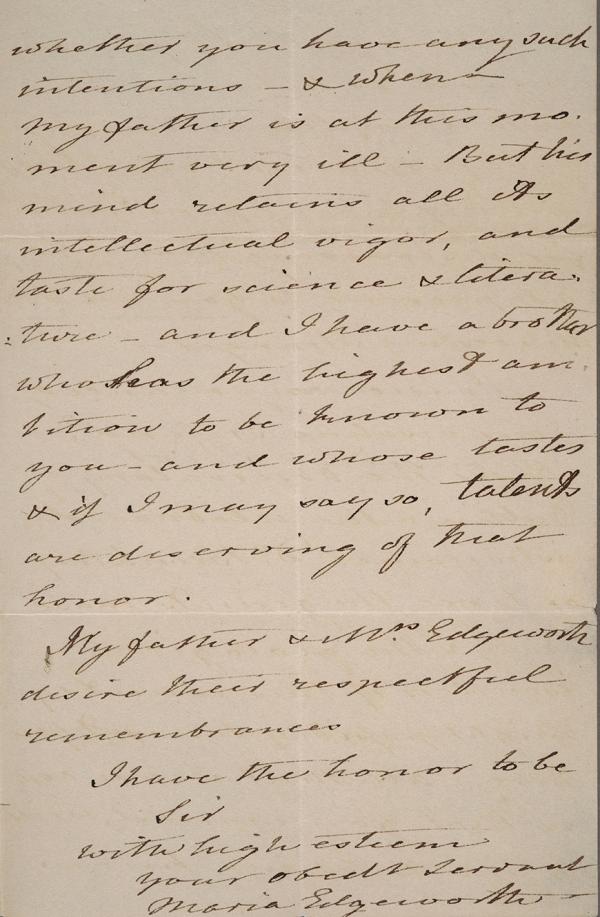 whether you have any such
intentions – & when –
My father is at this mo.
ment very ill – But his
mind retains all its
intellectual vigor, and
taste for science & litera.
:ture – and I have a brother
who has the highest am.
bition to be known to
you – and whose tastes
& if I may say so, talents
are deserving of that
honor.
My father & Mrs Edgeworth
desire their respectful
remembrances
I have the honor to be
Sir
with high esteem
your obedt servant
Maria Edgeworth –